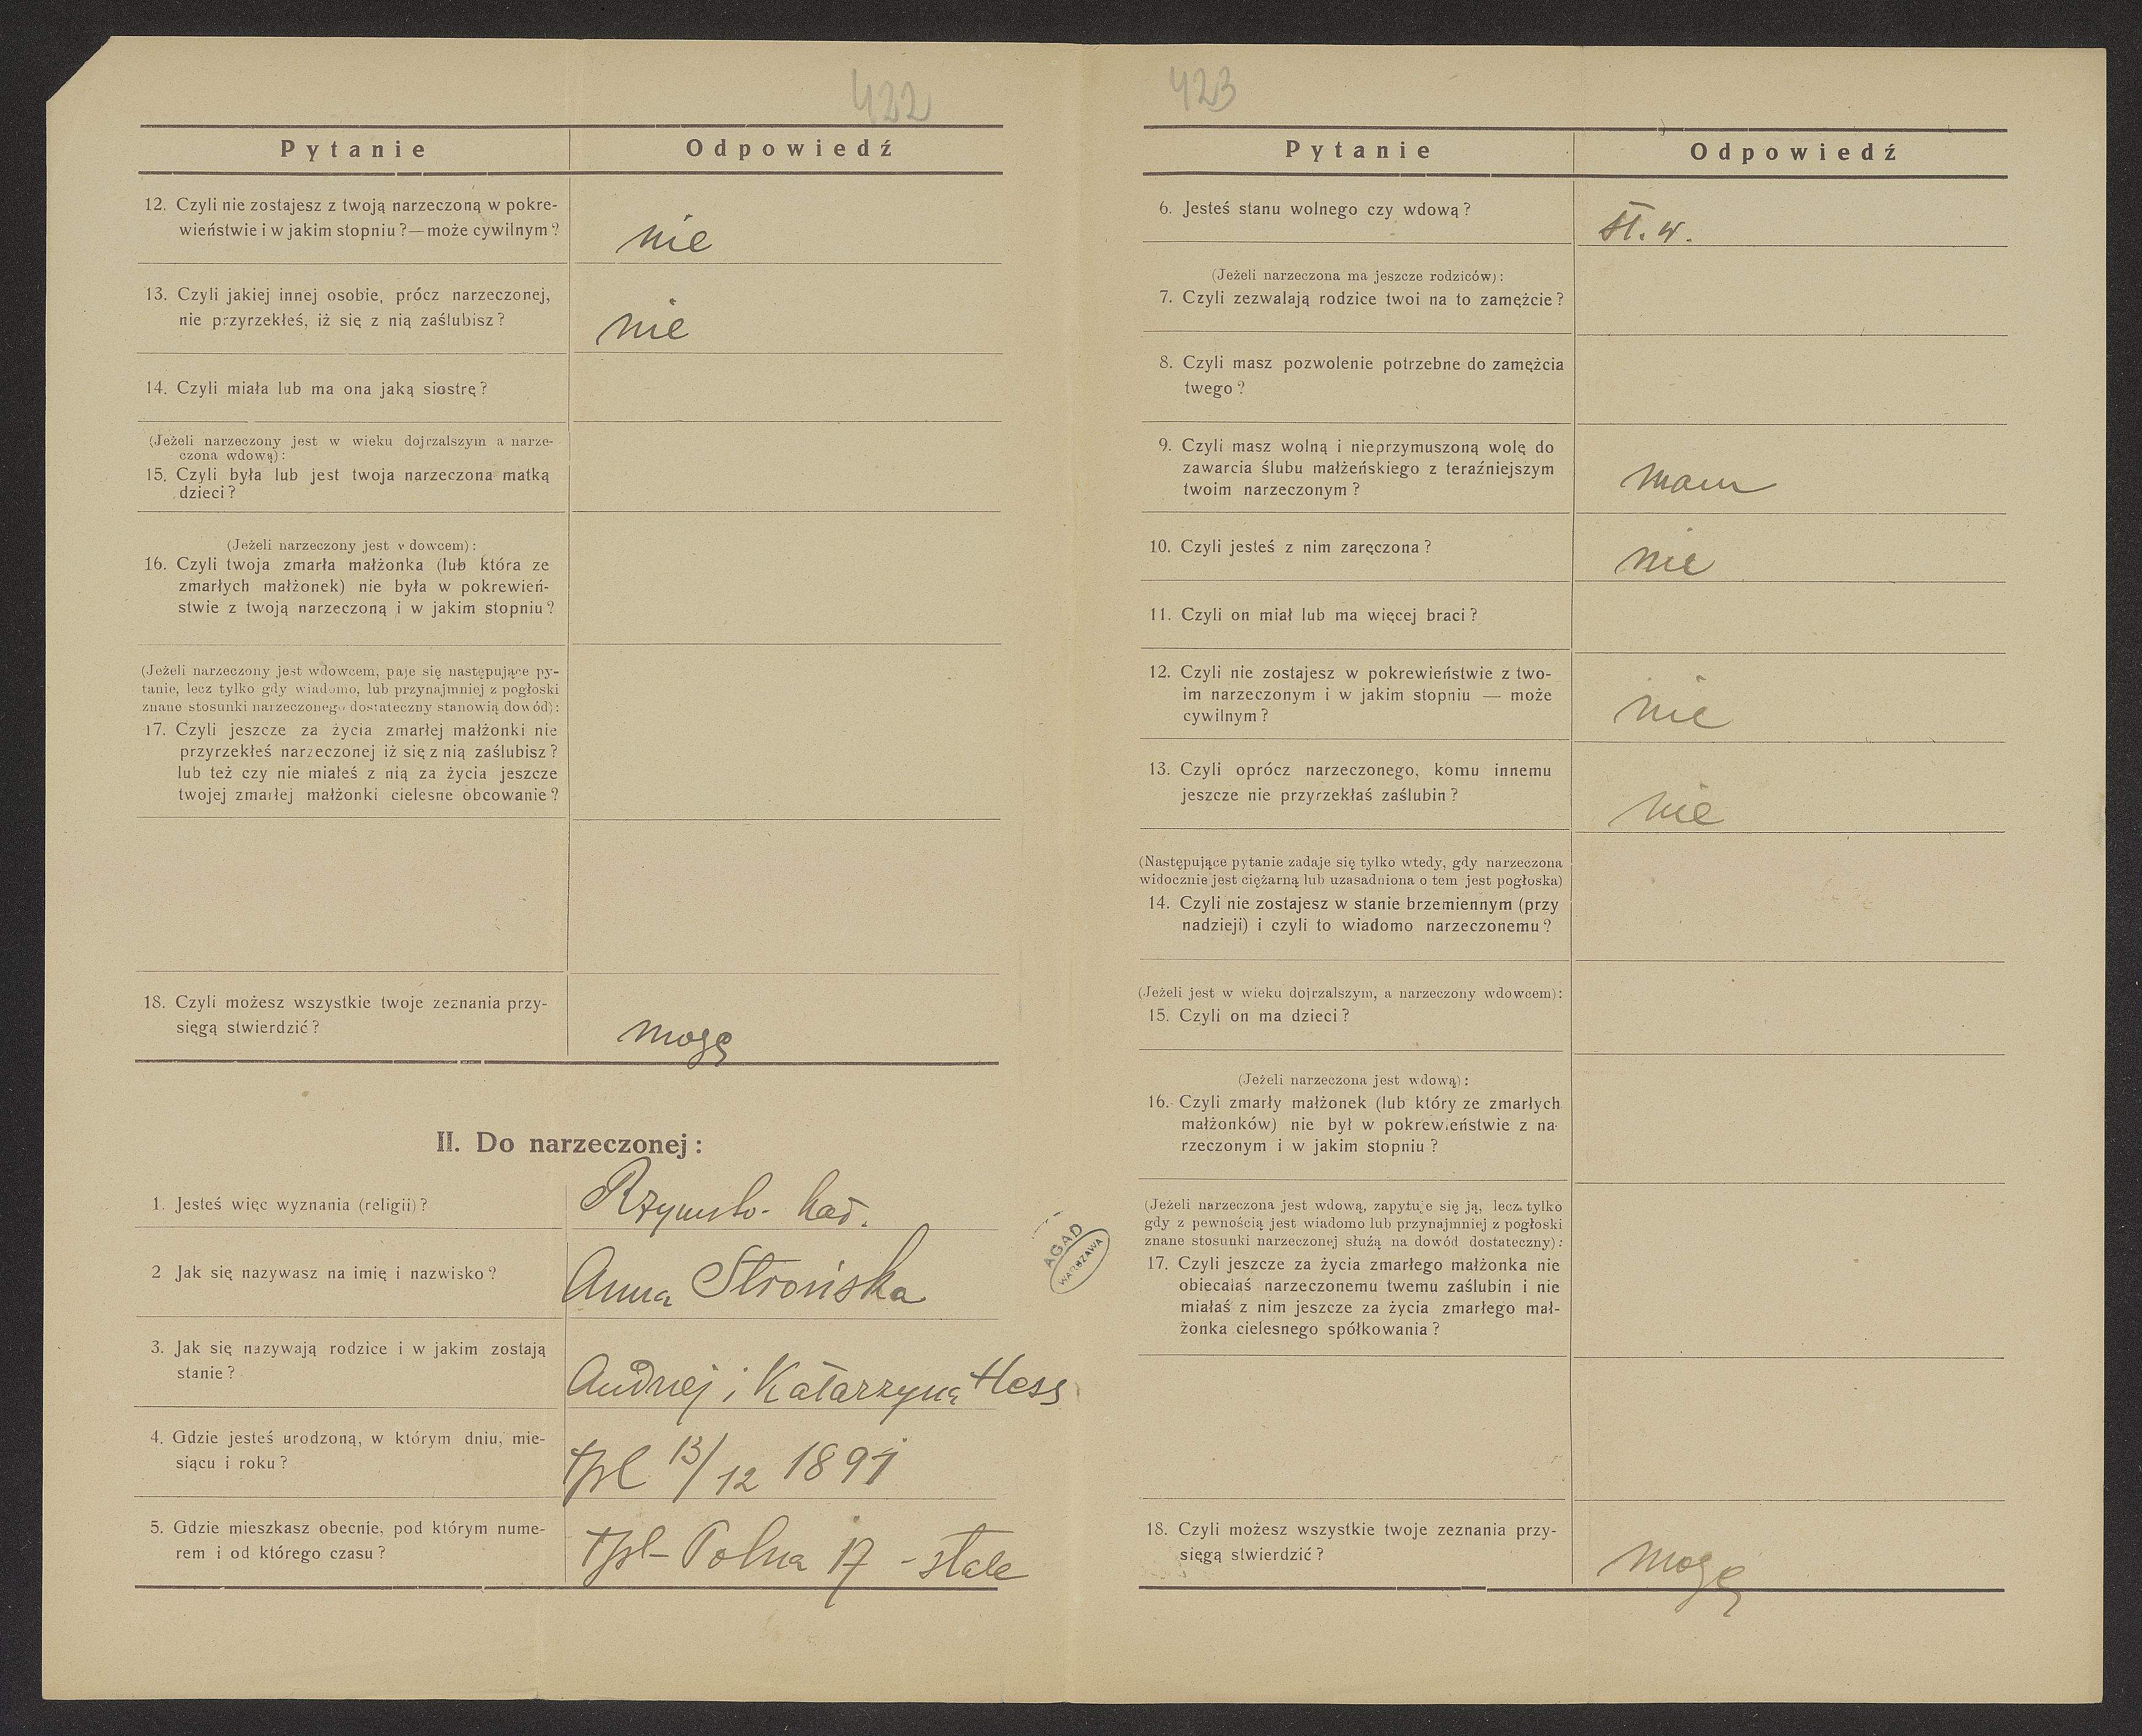 422
Pytanie
Odpowiedź
12. Czyli nie zostajesz z twoją narzeczoną w pokre-
wieństwie i w jakim stopniu?—może cywilnym?
nie
13. Czyli jakiej innej osobie, prócz narzeczonej,
nie przyrzekłeś, iż się z nią zaślubisz?
nie
14. Czyli miała lub ma ona jaką siostrę?
(Jeżeli narzeczony jest w wieku dojrzalszym a narze-
czona wdową):
15. Czyli była lub jest twoja narzeczona matką
dzieci?
(Jeżeli narzeczony jest w dowcem):
16. Czyli twoja zmarła małżonka (lub która ze
zmarłych małżonek) nie była w pokrewień-
stwie z twoją narzeczoną i w jakim stopniu?
(Jeżeli narzeczony jest wdowcem, paje się następujące py-
tanie, lecz tylko gdy wiadomo, lub przynajmniej z pogłoski
znane stosunki narzeczonego dostateczny stanowią dowód):
17. Czyli jeszcze za życia zmarłej małżonki nie
przyrzekłeś narzeczonej iż się z nią zaślubisz?
lub też czy nie miałeś z nią za życia jeszcze
twojej zmarłej małżonki cielesne obcowanie?
18. Czyli możesz wszystkie twoje zeznania przy-
sięgą stwierdzić?
mogę
II. Do narzeczonej:
1. Jesteś więc wyznania (religii)?
Rzymsko-kat.
2 Jak się nazywasz na imię i nazwisko?
Anna Strońska
3. Jak się nazywają rodzice i w jakim zostają
stanie?
Andrzej i Katarzyna Hess
4. Gdzie jesteś urodzoną, w którym dniu, mie-
siącu i roku?
Tpl 13/12 1891
5. Gdzie mieszkasz obecnie, pod którym nume-
rem i od którego czasu?
Tpl - Polna 17 - stale
AGAD
WARSZAWA
423
Pytanie
Odpowiedź
6. Jesteś stanu wolnego czy wdową?
st. w.
(Jeżeli narzeczona ma jeszcze rodziców):
7. Czyli zezwalają rodzice twoi na to zamęźcie?
8. Czyli masz pozwolenie potrzebne do zamęźcia
twego?
9. Czyli masz wolną i nieprzymuszoną wolę do
zawarcia ślubu małżeńskiego z teraźniejszym
twoim narzeczonym?
mam
10. Czyli jesteś z nim zaręczona?
nie
11. Czyli on miał lub ma więcej braci?
12. Czyli nie zostajesz w pokrewieństwie z two-
im narzeczonym i w jakim stopniu — może
cywilnym?
nie
13. Czyli oprócz narzeczonego, komu innemu
jeszcze nie przyrzekłaś zaślubin?
nie
(Następujące pytanie zadaje się tylko wtedy, gdy narzeczona
widocznie jest ciężarną lub uzasadniona o tem jest pogłoska)
14. Czyli nie zostajesz w stanie brzemiennym (przy
nadzieji) i czyli to wiadomo narzeczonemu?
(Jeżeli jest w wieku dojrzalszym, a narzeczony wdowcem):
15. Czyli on ma dzieci?
(Jeżeli narzeczona jest wdową):
16. Czyli zmarły małżonek (lub który ze zmarłych
małżonków) nie był w pokrewieństwie z na-
rzeczonym i w jakim stopniu?
(Jeżeli narzeczona jest wdową, zapytuje się ją, lecz tylko
gdy z pewnością jest wiadomo lub przynajmniej z pogłoski
znane stosunki narzeczonej służą na dowód dostateczny):
17. Czyli jeszcze za życia zmarłego małżonka nie
obiecałaś narzeczonemu twemu zaślubin i nie
miałaś z nim jeszcze za życia zmarłego mał-
żonka cielesnego spółkowania?
18. Czyli możesz wszystkie twoje zeznania przy-
sięgą stwierdzić?
mogę